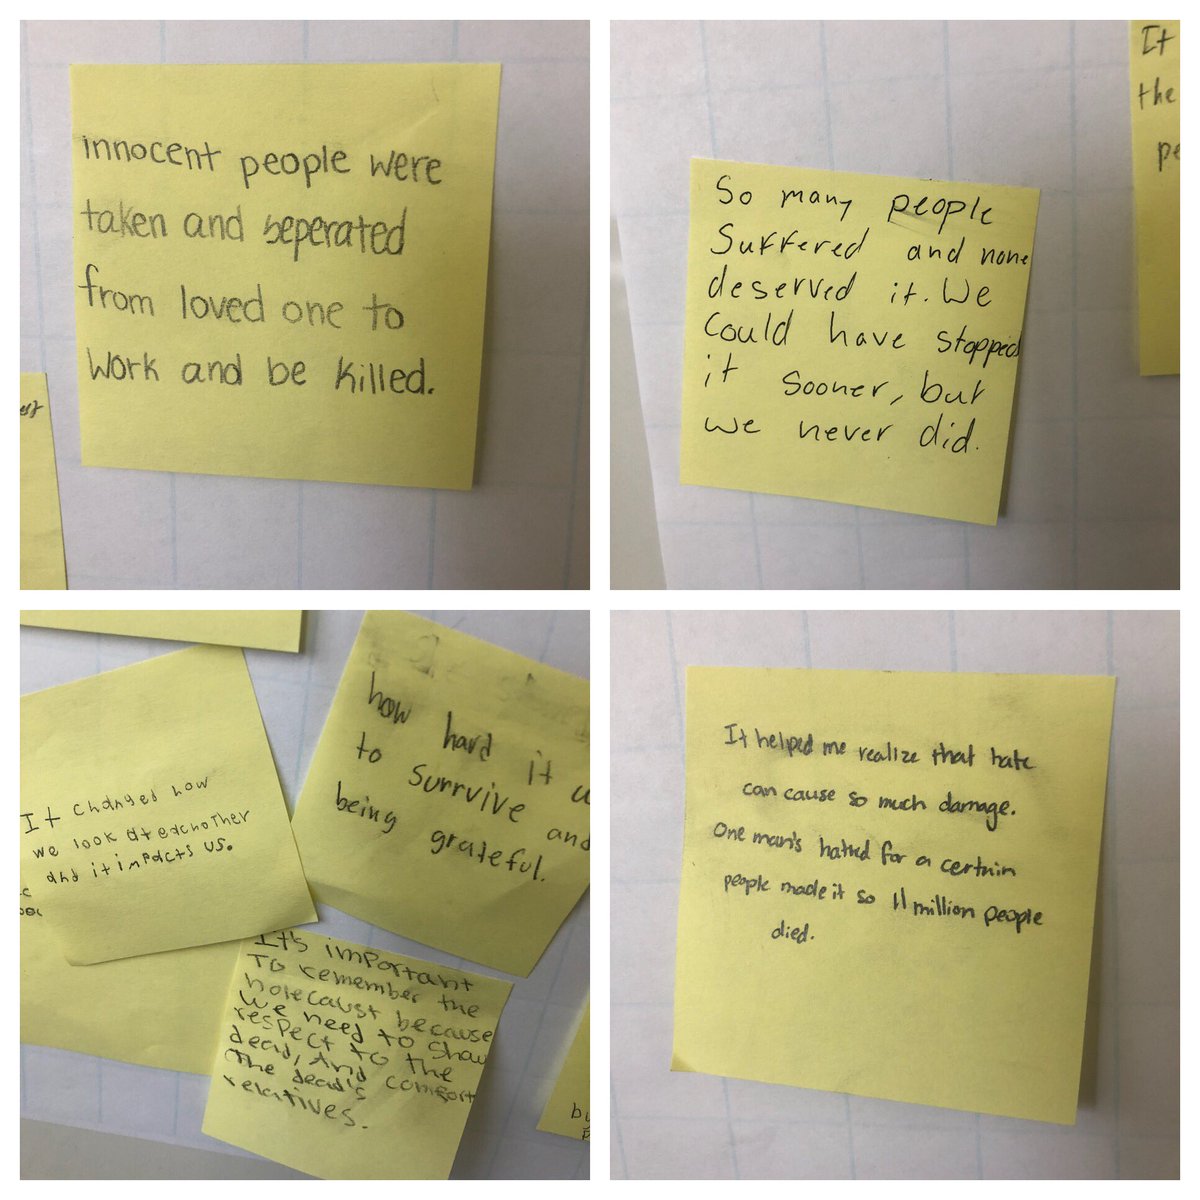 innocent people were
taken and seperated
from loved one to
work and be killed.
So many people
Suffered and none
deserved it. We
could have stopped
it sooner, but
we never did.
It
the
pe
It changed how
we look at eachother
and it impacts us.
how hard it w
to surrvive and
being grateful.
It's important
To remember the
holecaust because
we need to show
respect to the
dead, And comfort
The dead's
relatives.
bu
It helped me realize that hate
can cause so much damage.
One man's hatred for a certain
people made it so 11 million people
died.